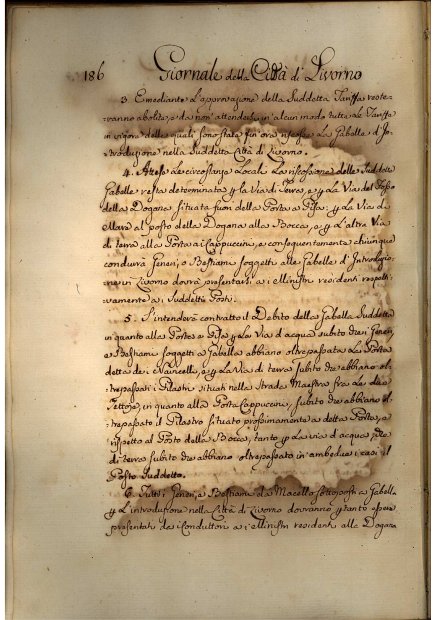 186 Giornale della Città di Livorno
3. E mediante l'approvazione della Suddetta Tariffa reste-
ranno abolite, e da non attendersi in alcun modo tutte le Tariffe
in vigore delle quali sono state fin'ora riscosse le Gabelle d'In-
troduzione nella Suddetta Città di Livorno.
4. Attese le circostanze Locali la riscossione delle Suddette
Gabelle resta determinata p la Via di Terra, e p la Via del Fosso
della Dogana situata fuori della Porta a Pisa: p la Via di
Mare al posto della Dogana alla Bocca, e p l'altra Via
di terra alla Porta ai Cappuccini, e conseguentemente chiunque
condurrà Generi, o Bestiami soggetti alle Gabelle d'Introduzio-
ne in Livorno dovrà presentarsi a i Ministri residenti respetti-
vamente a i Suddetti Posti.
5. S'intenderà contratto il Debito della Gabella Suddetta
in quanto alla Porta a Pisa p la Via d'acqua subito che i Generi,
e Bestiami soggetti a Gabella abbiano oltrepassata la Porta
detta dei Navicelli, e p la Via di terra subito che abbiano ol-
trepassati i Pilastri situati nella Strada Maestra fra le due
Tettoje, in quanto alla Porta Cappuccini, subito che abbiano ol-
trepassato il Pilastro situato prossimamente a detta Porta, e
rispetto al Posto della Bocca, tanto p la via d'acqua, che
di terra subito che abbiano oltrepassato in ambedue i casi il
Posto Suddetto.
6. Tutti i Generi, e Bestiami da Macello sottoposti a Gabella
p l'introduzione nella Città di Livorno dovranno p tanto essere
presentati da i Conduttori a i Ministri residenti alla Dogana